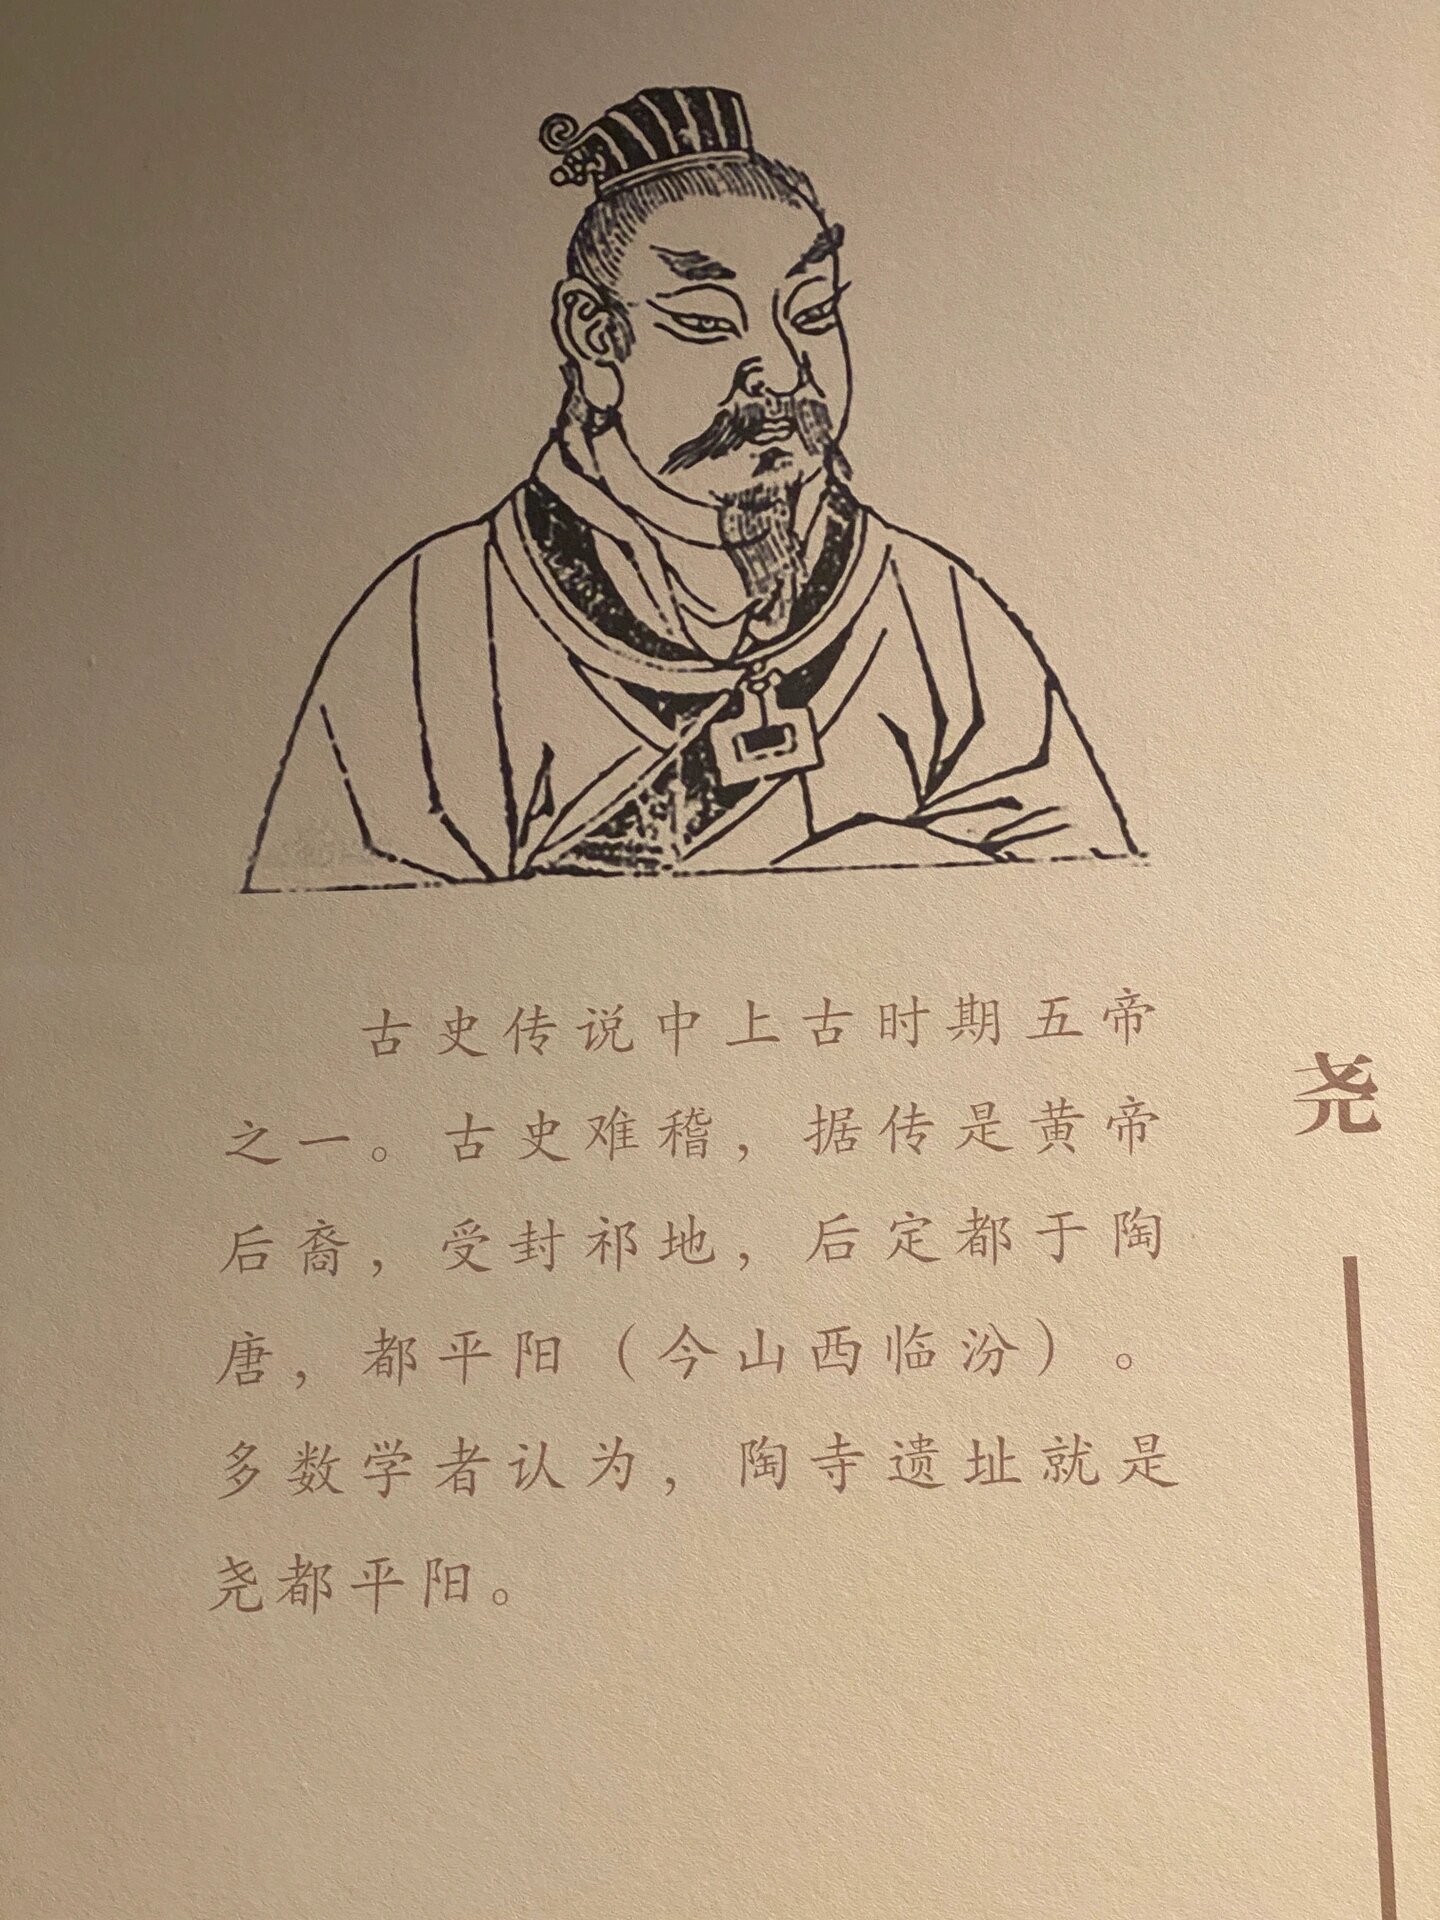 尧
古史传说中上古时期五帝
之一。古史难稽，据传是黄帝
后裔，受封祁地，后定都于陶
唐，都平阳（今山西临汾）。
多数学者认为，陶寺遗址就是
尧都平阳。